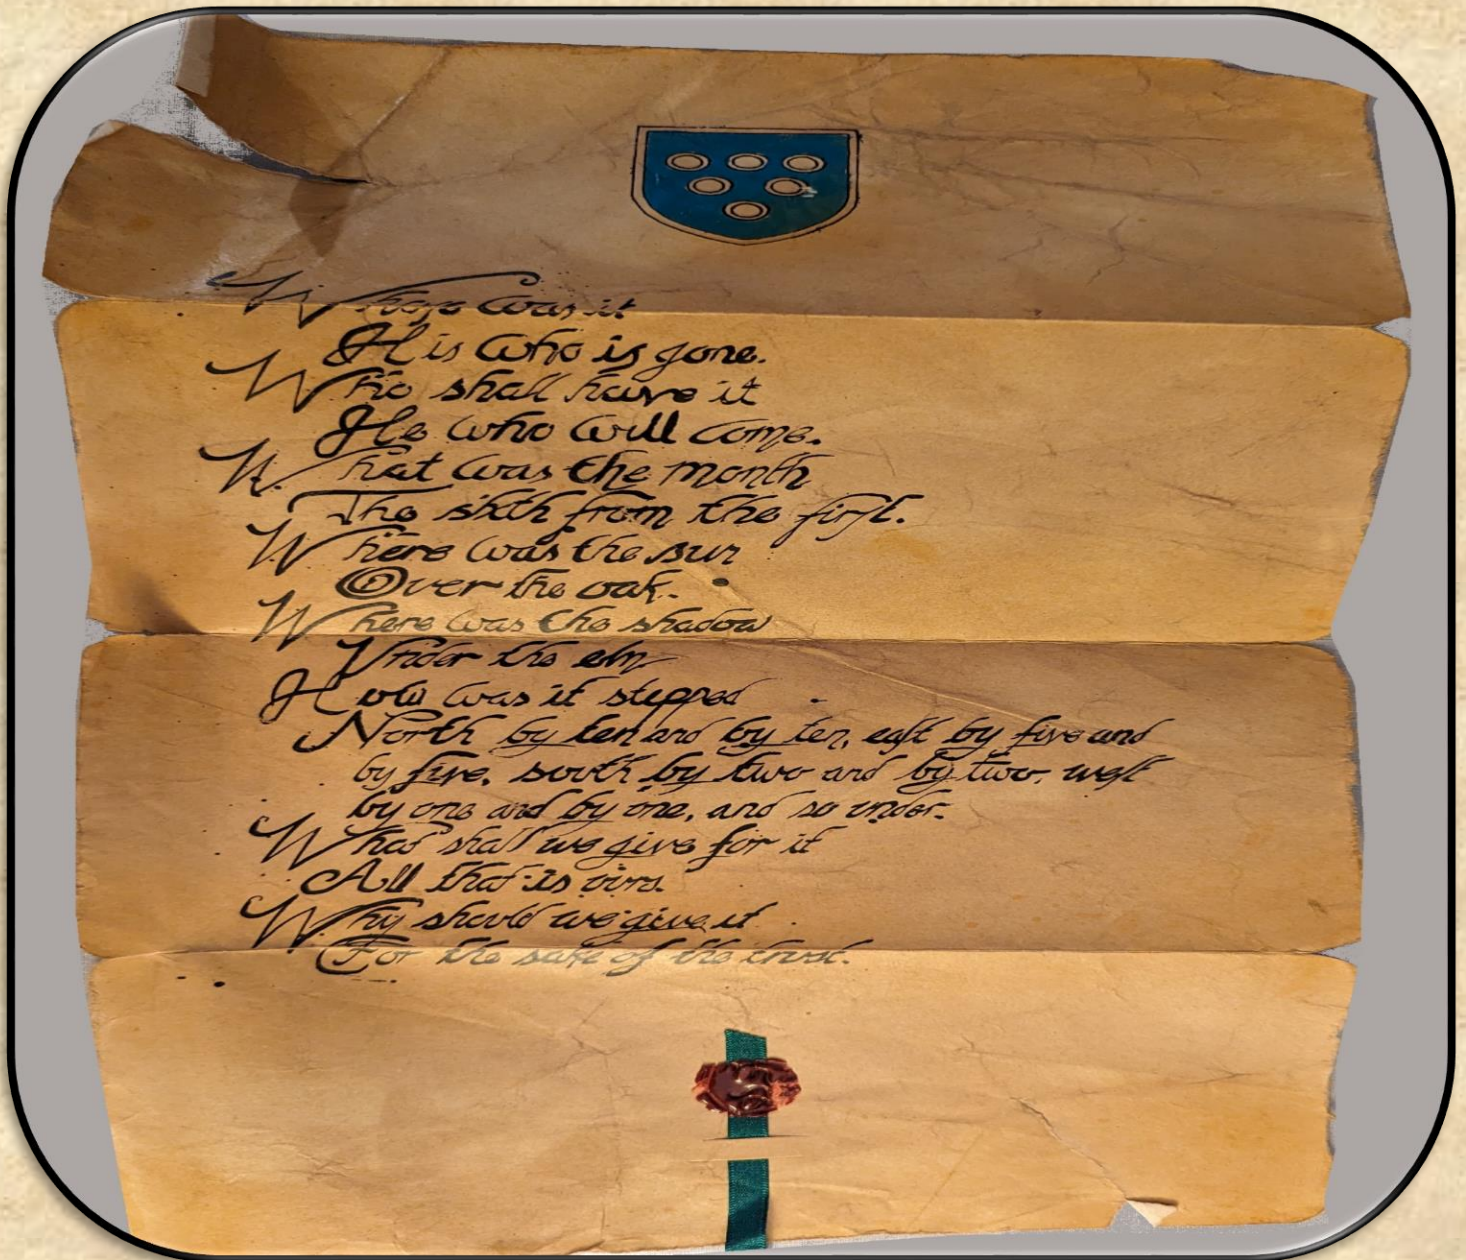 Whose was it
His who is gone.
Who shall have it
He who will come.
What was the month
The sixth from the first.
Where was the sun
Over the oak.
Where was the shadow
Under the elm
How was it stepped
North by ten and by ten, east by five and
by five, south by two and by two, west
by one and by one, and so under.
What shall we give for it
All that is ours.
Why should we give it
For the sake of the trust.